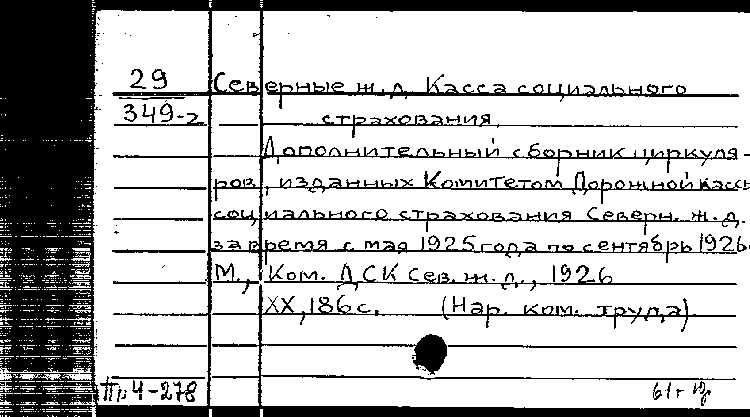 29 Северные ж.д. Касса социального
349-2 страхования.
Дополнительный сборник циркуля-
ров, изданных Комитетом Дорожной кассы
социального страхования Северн. ж.д.
за время с мая 1925 года по сентябрь 1926
М., Ком. ДСК Сев. ж.д., 1926
XX, 186 с. (Нар. ком. труда).
Пр 4-278 61г